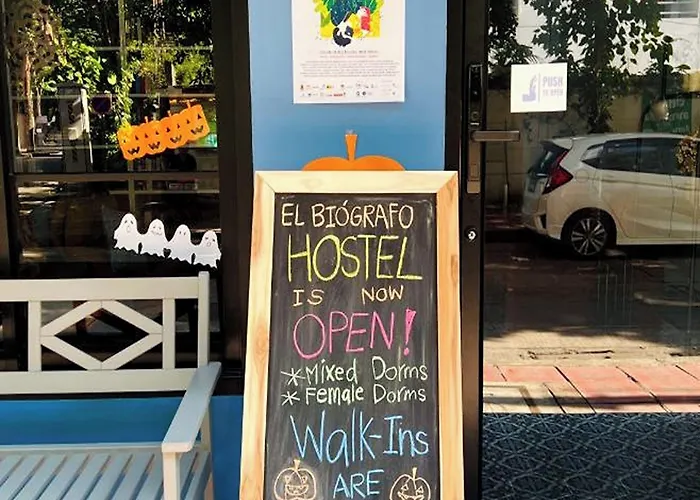 PUSH
TO OPEN
EL BIÓGRAFO
HOSTEL
IS NOW
OPEN!
*Mixed Dorms
*Female Dorms
Walk-Ins
ARE